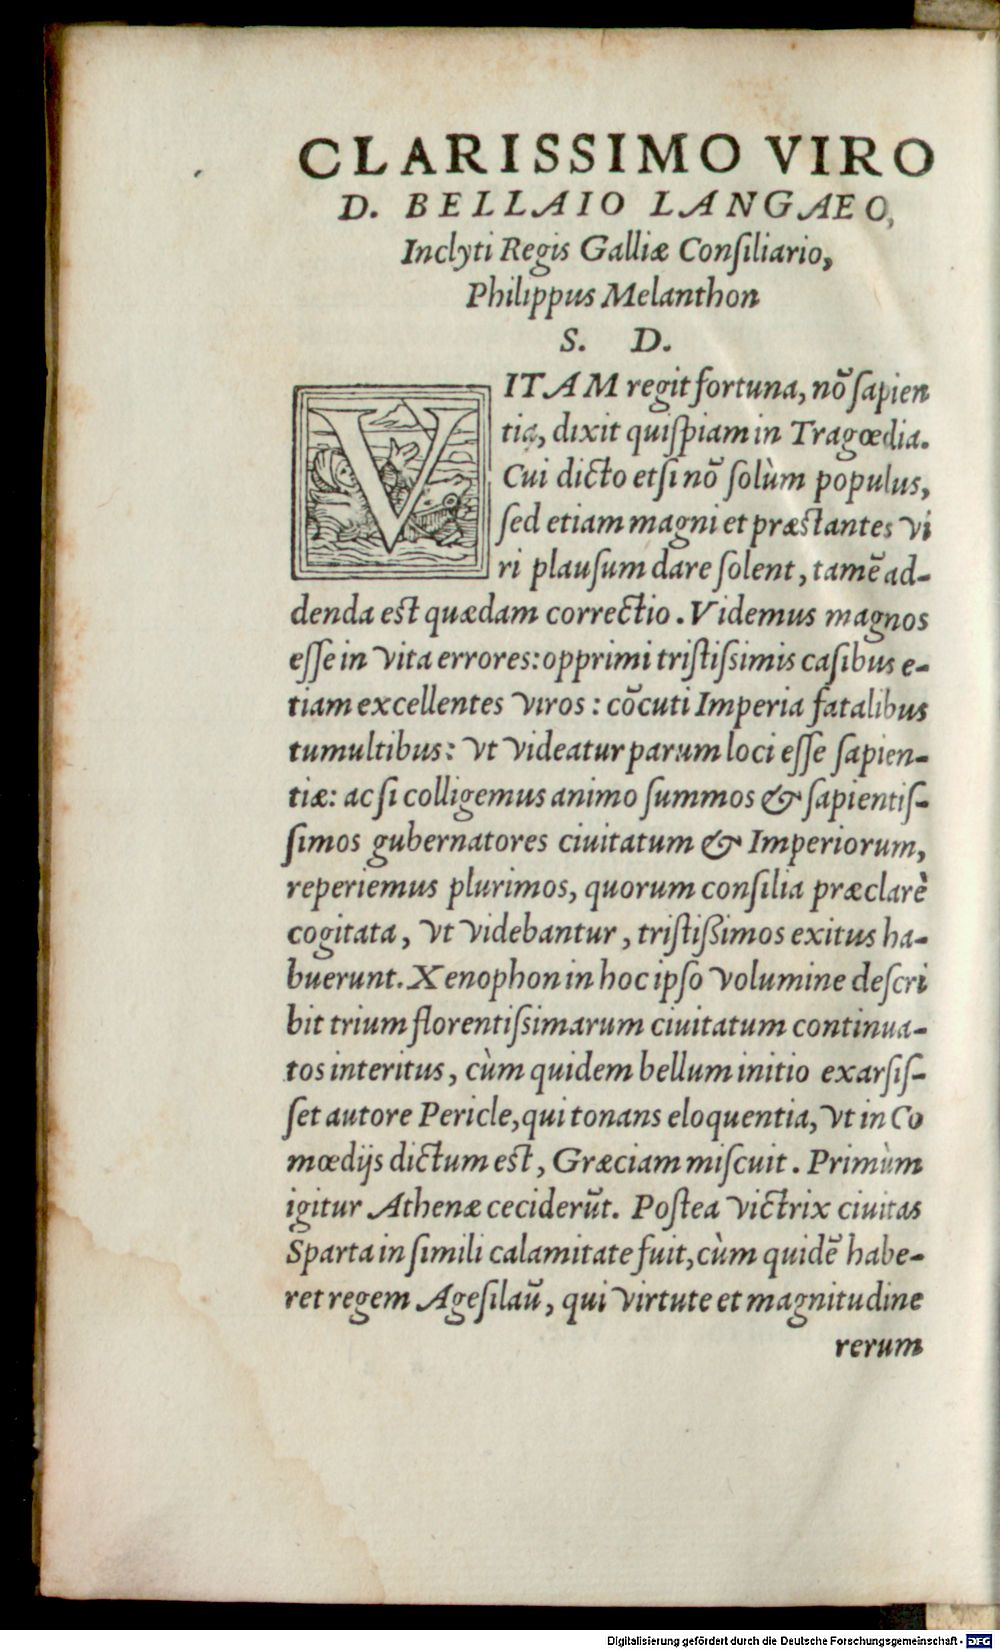 CLARISSIMO VIRO
D. BELLAIO LANGAEO,
Inclyti Regis Galliæ Conſiliario,
Philippus Melanthon
S. D.
VITAM regit fortuna, nõ ſapien
tia, dixit quiſpiam in Tragœdia.
Cui dicto etſi nõ ſolùm populus,
ſed etiam magni et præſtantes vi
ri plauſum dare ſolent, tamẽ ad-
denda eſt quædam correctio. Videmus magnos
eſſe in vita errores: opprimi triſtiſsimis caſibus e-
tiam excellentes viros: cõcuti Imperia fatalibus
tumultibus: vt videatur parum loci eſſe ſapien-
tiæ: ac ſi colligemus animo ſummos & ſapientiſ-
ſimos gubernatores ciuitatum & Imperiorum,
reperiemus plurimos, quorum conſilia præclarè
cogitata, vt videbantur, triſtiſsimos exitus ha-
buerunt. Xenophon in hoc ipſo volumine deſcri
bit trium florentiſsimarum ciuitatum continua-
tos interitus, cùm quidem bellum initio exarſiſ-
ſet autore Pericle, qui tonans eloquentia, vt in Co
mœdijs dictum eſt, Græciam miſcuit. Primùm
igitur Athenæ ceciderũt. Poſtea victrix ciuitas
Sparta in ſimili calamitate fuit, cùm quidẽ habe-
ret regem Ageſilaũ, qui virtute et magnitudine
rerum
Digitalisierung gefördert durch die Deutsche Forschungsgemeinschaft - DFG